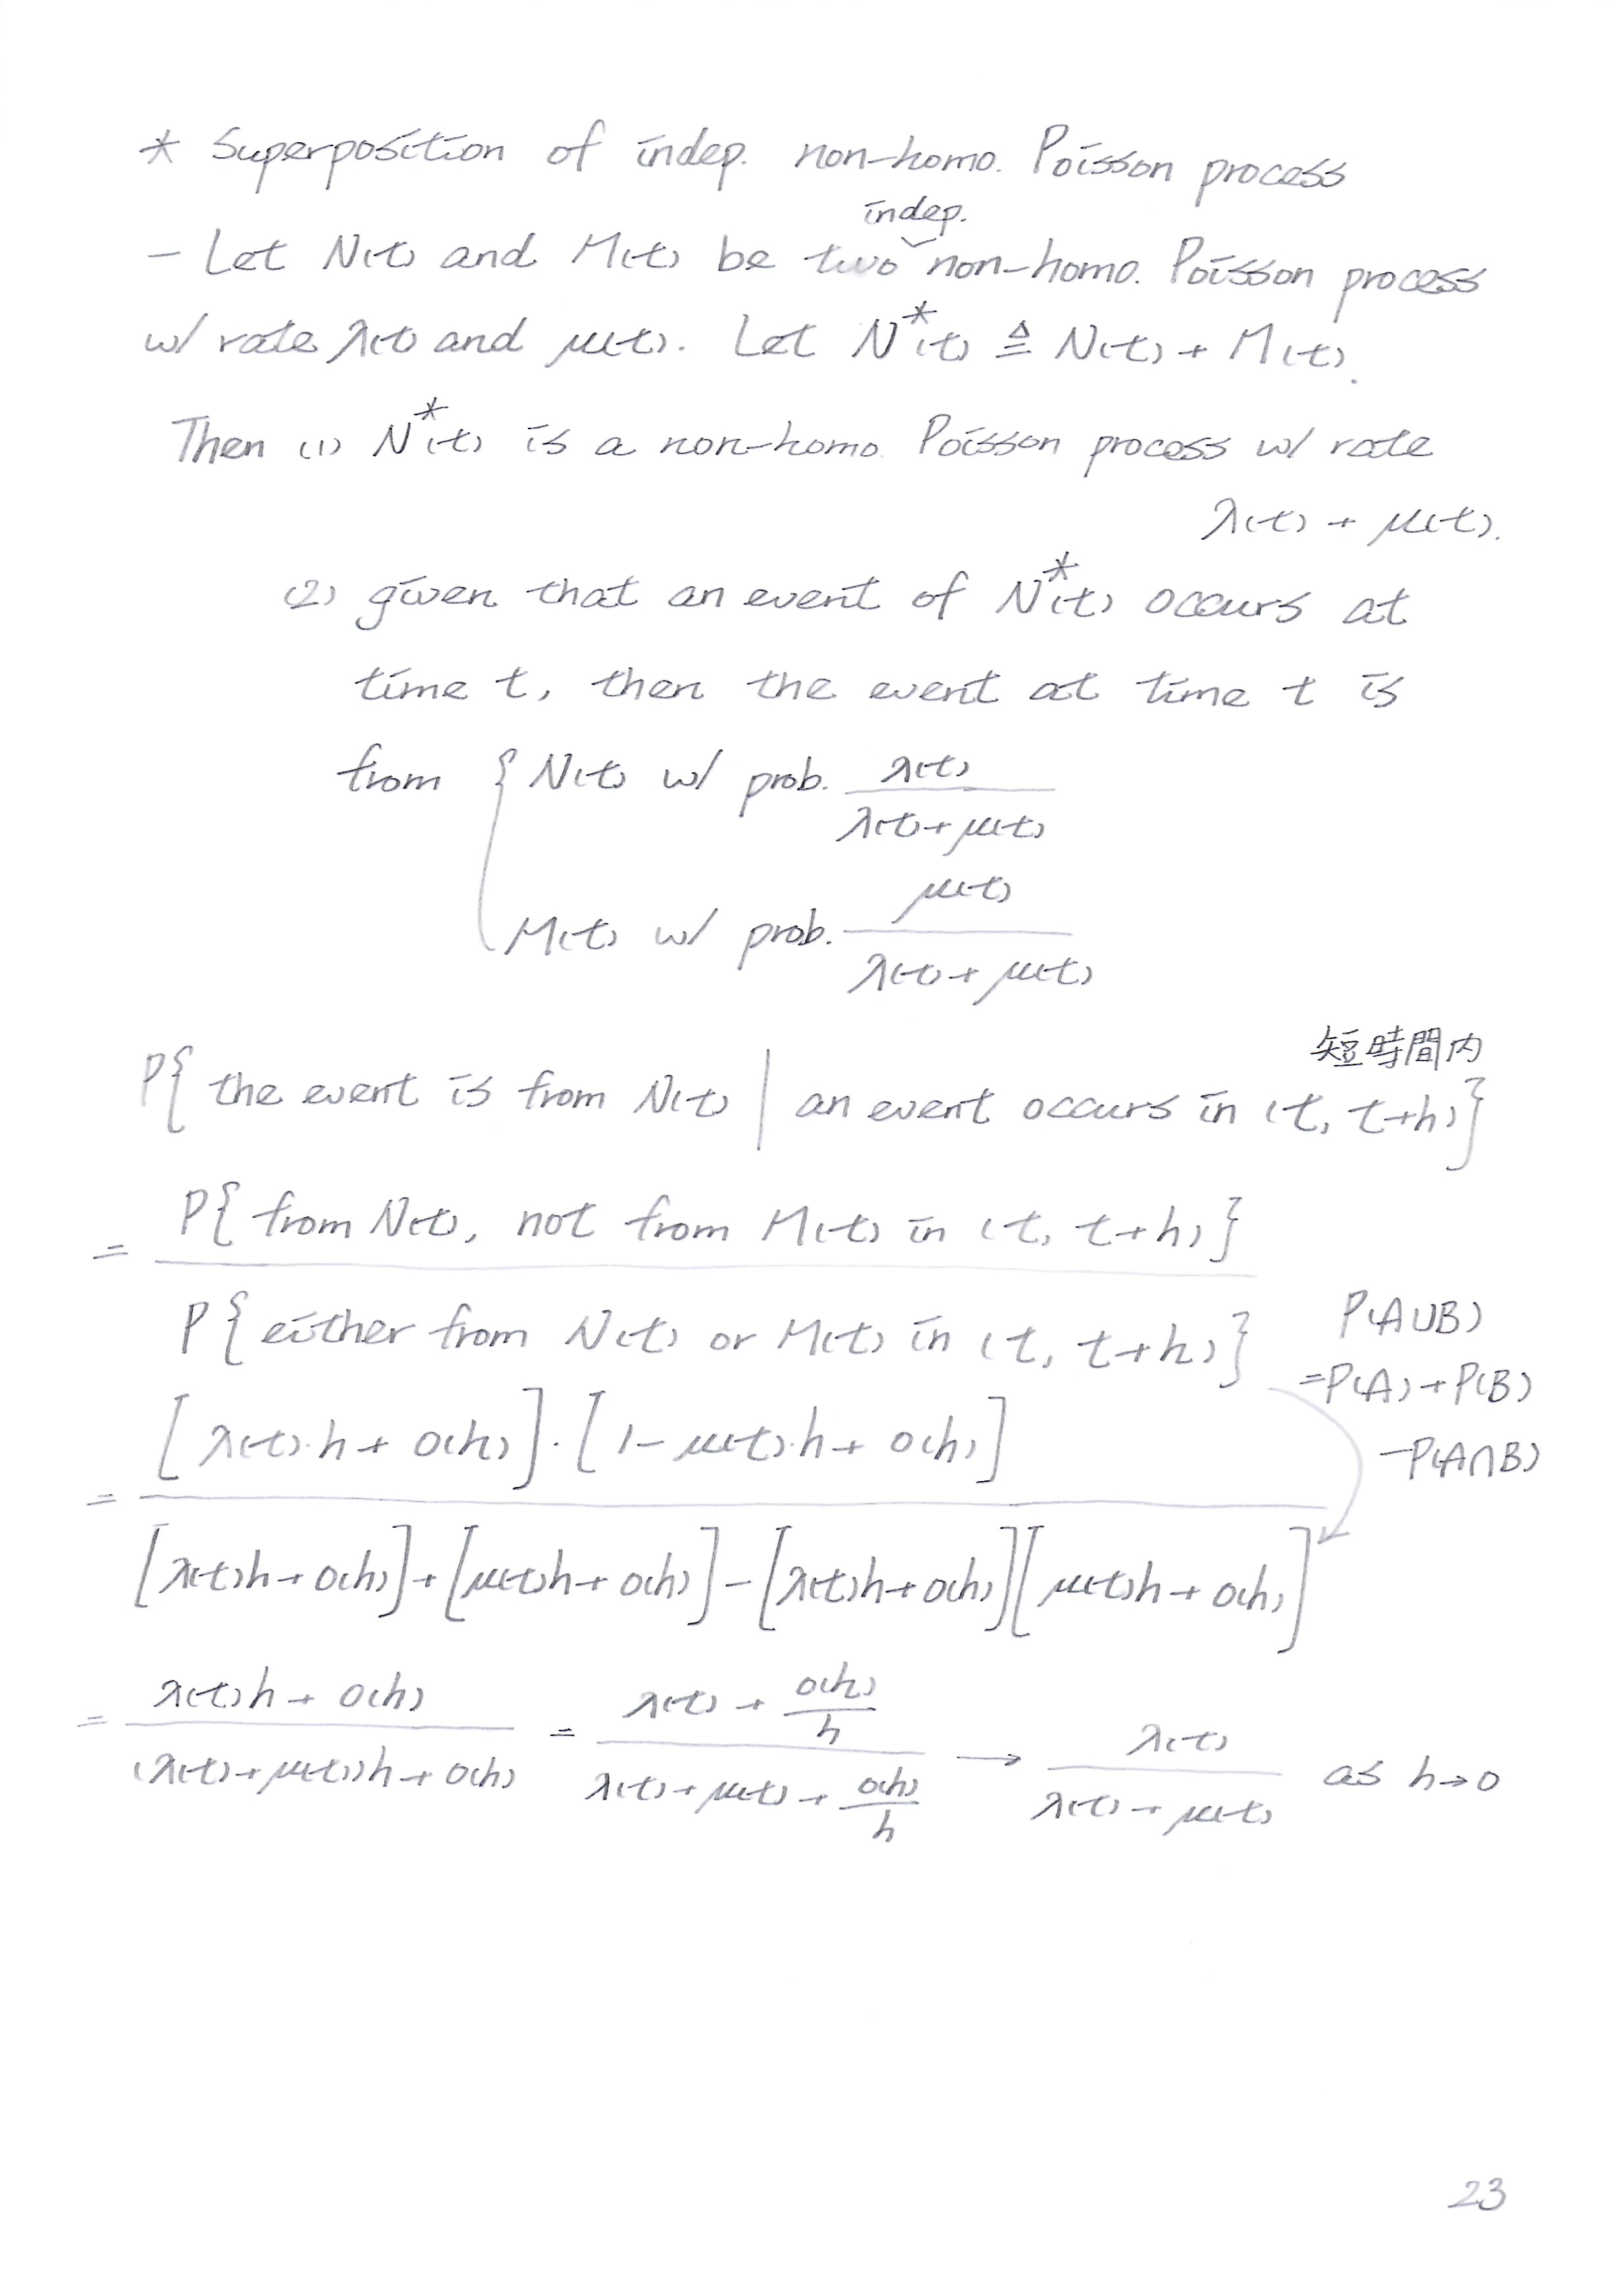 * Superposition of indep. non-homo. Poisson process
indep.
- Let N(t) and M(t) be two ˅ non-homo. Poisson process
w/ rate λ(t) and μ(t). Let N*(t) ≜ N(t) + M(t).
Then (1) N*(t) is a non-homo. Poisson process w/ rate
λ(t) + μ(t).
(2) given that an event of N*(t) occurs at
time t, then the event at time t is
from { N(t) w/ prob. λ(t) / (λ(t) + μ(t))
M(t) w/ prob. μ(t) / (λ(t) + μ(t))
短時間内
P{ the event is from N(t) | an event occurs in (t, t+h) }
= P{ from N(t), not from M(t) in (t, t+h) }
P{ either from N(t) or M(t) in (t, t+h) }
P(A∪B)
= P(A) + P(B)
- P(A∩B)
= [λ(t)·h + o(h)]·[1 - μ(t)·h + o(h)]
[λ(t)h + o(h)] + [μ(t)h + o(h)] - [λ(t)h + o(h)][μ(t)h + o(h)]
= (λ(t)h + o(h)) / ((λ(t) + μ(t))h + o(h)) = (λ(t) + o(h)/h) / (λ(t) + μ(t) + o(h)/h) → λ(t) / (λ(t) + μ(t)) as h→0
23